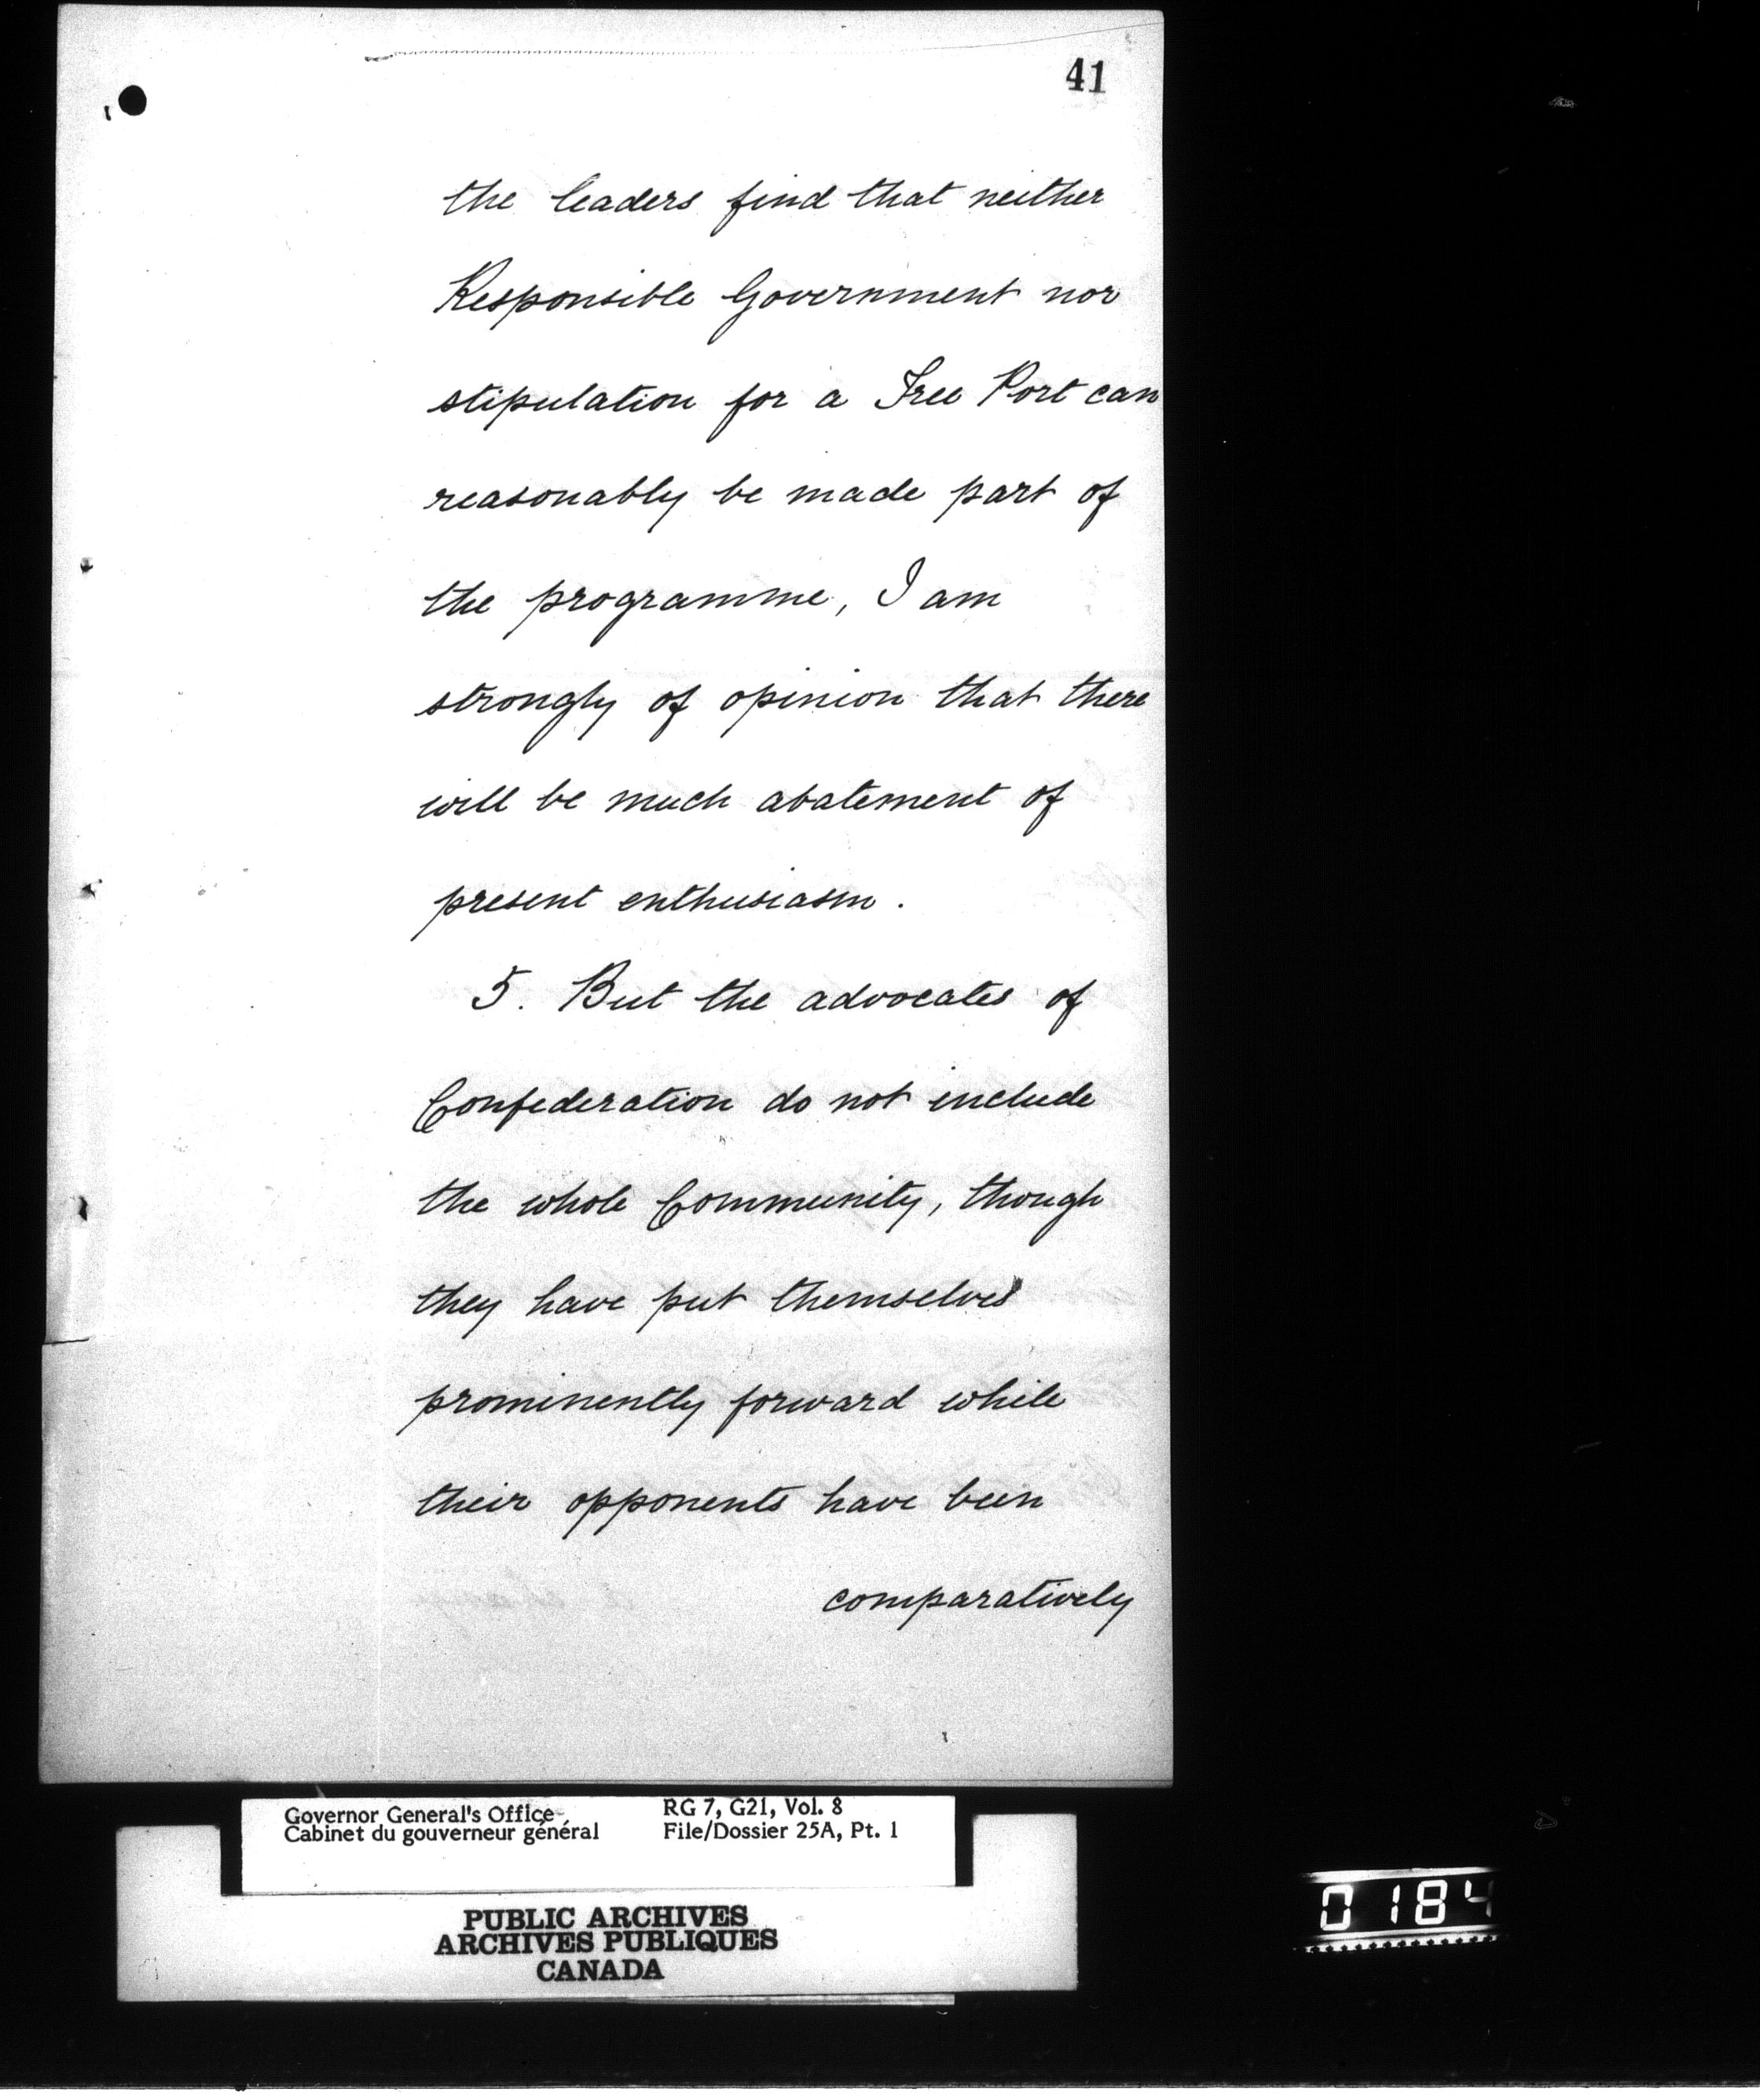 41
the leaders find that neither
Responsible Government nor
stipulation for a Free Port can
reasonably be made part of
the programme, I am
strongly of opinion that there
will be much abatement of
present enthusiasm.
5. But the advocates of
Confederation do not include
the whole Community, though
they have put themselves
prominently forward while
their opponents have been
comparatively
Governor General's Office
Cabinet du gouverneur général
RG 7, G21, Vol. 8
File/Dossier 25A, Pt. 1
PUBLIC ARCHIVES
ARCHIVES PUBLIQUES
CANADA
0184